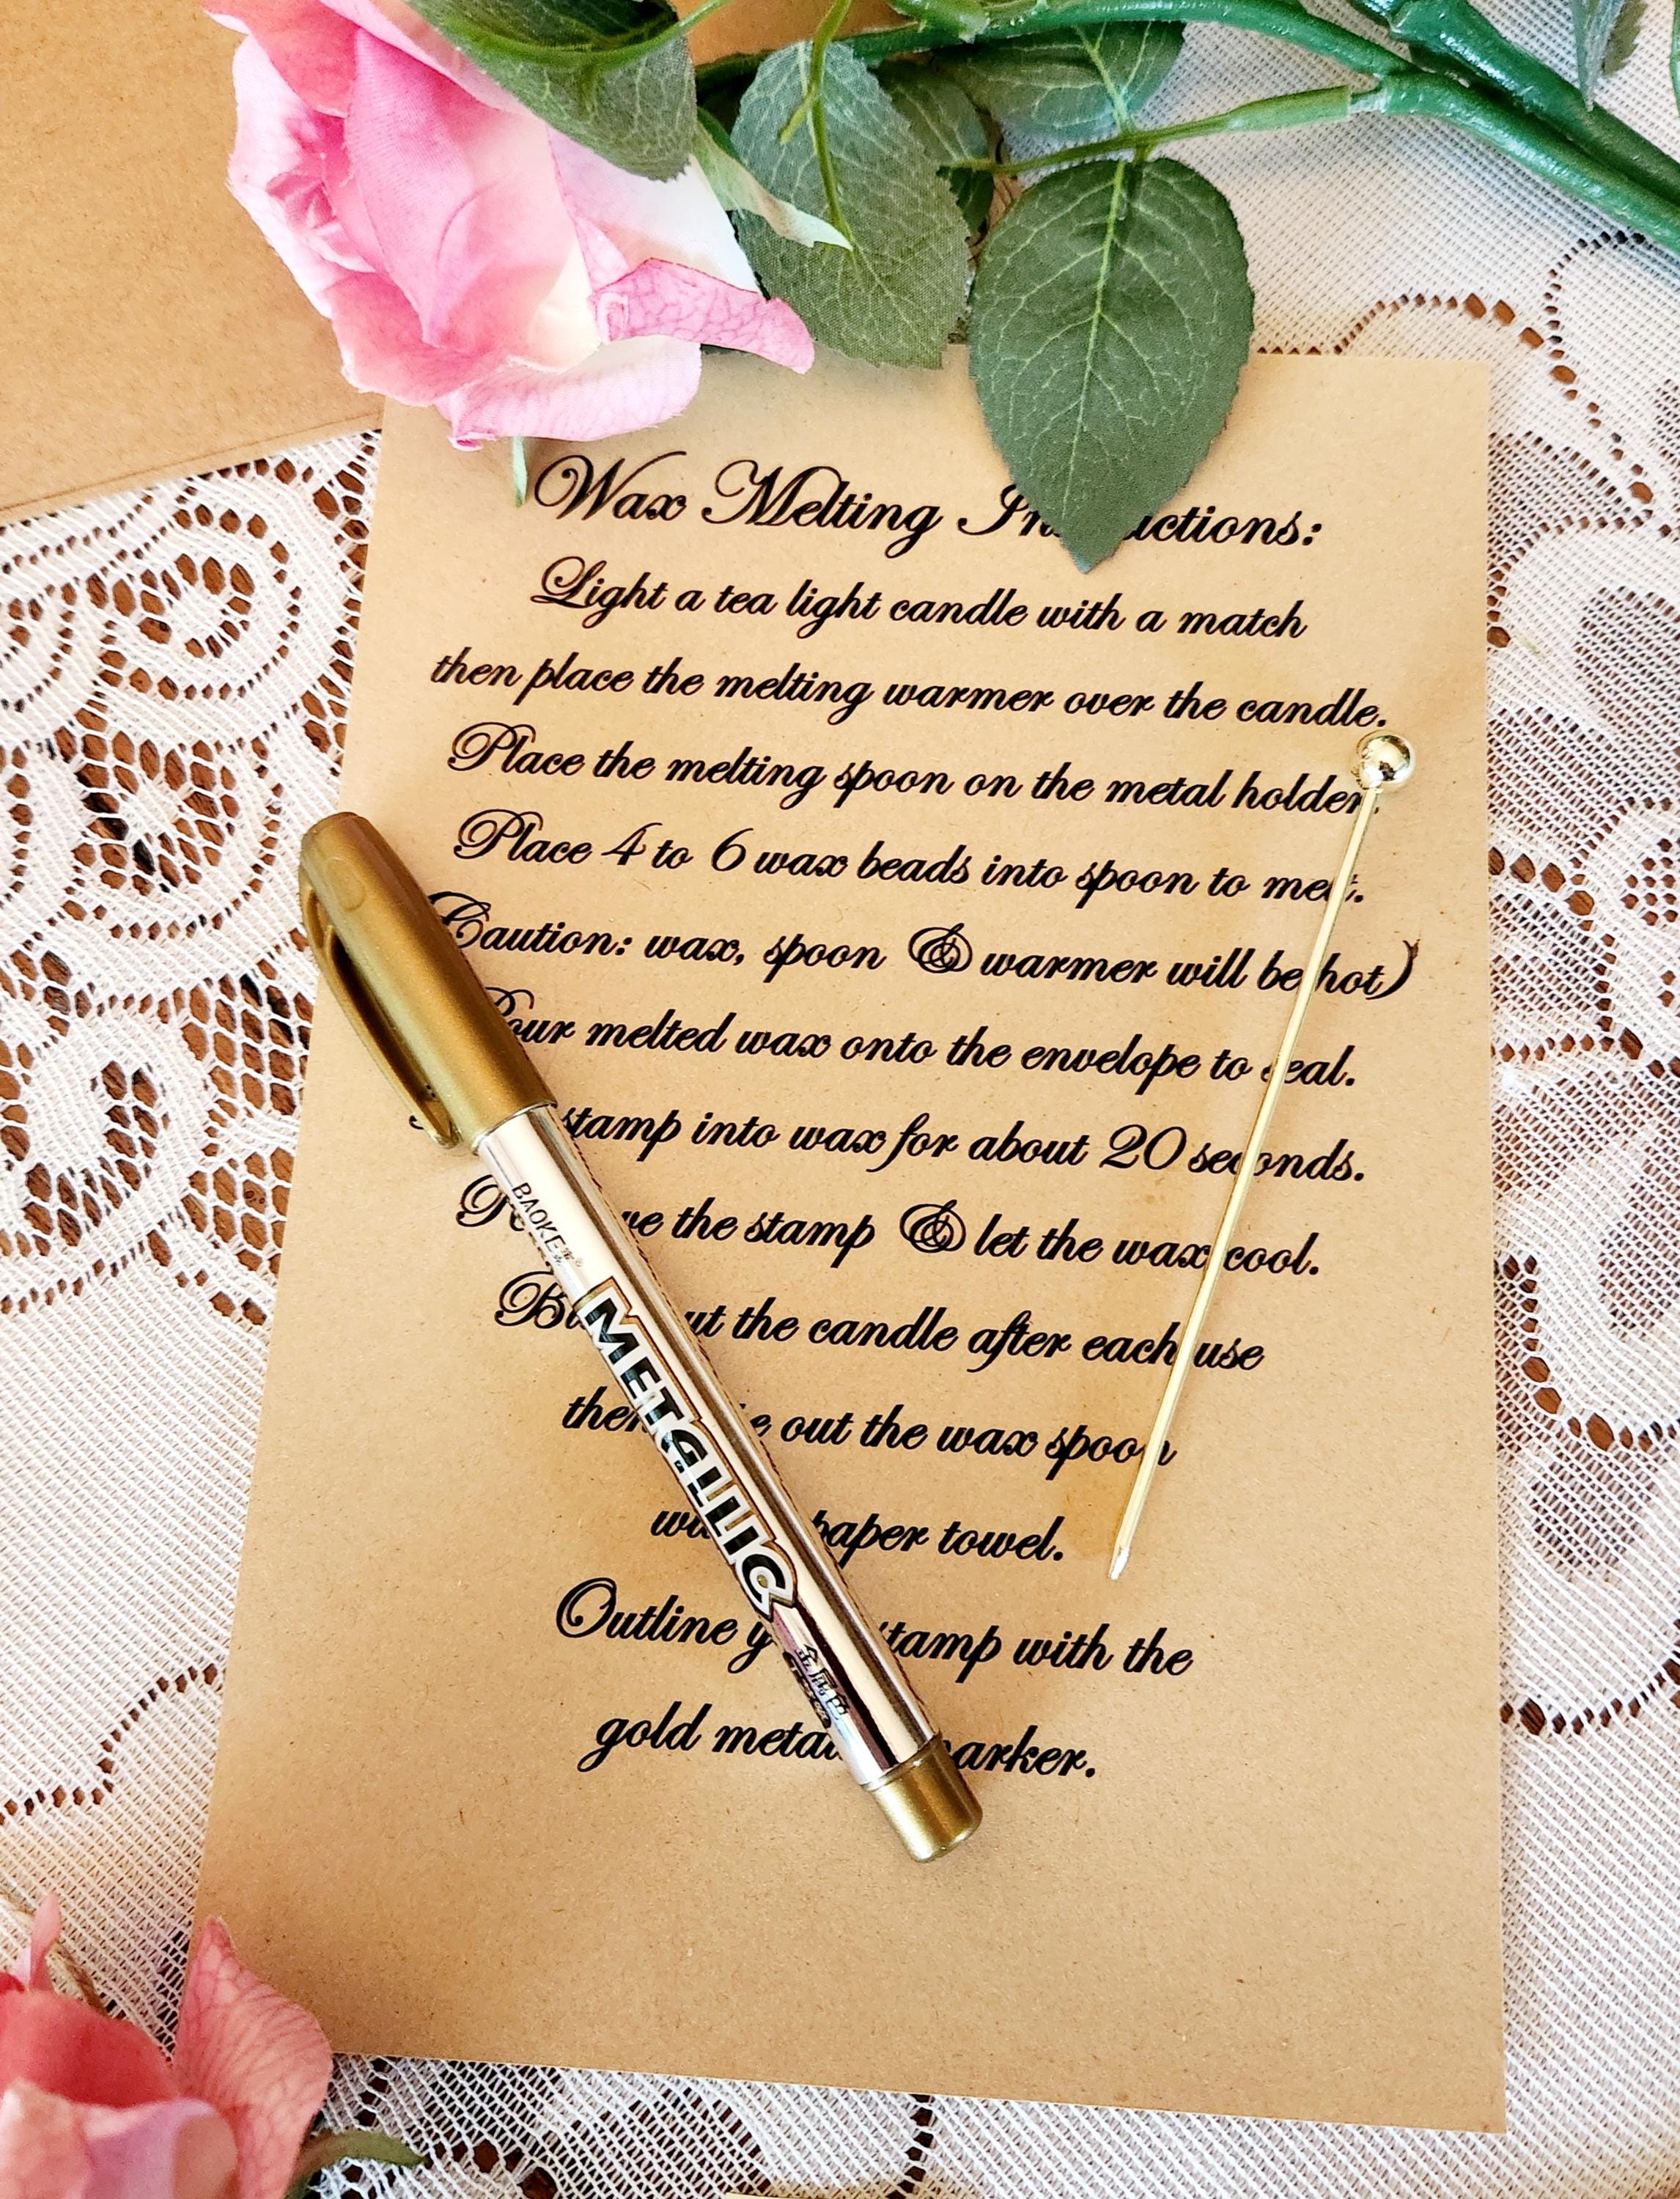 Wax Melting
Light a tea light candle with a match
then place the melting warmer over the candle.
Place the melting spoon on the metal holder.
Place 4 to 6 wax beads into spoon to melt.
Caution: wax, spoon & warmer will be hot)
Pour melted wax onto the envelope to seal.
stamp into wax for about 20 seconds.
the stamp & let the wax cool.
the candle after each use
out the wax spoon
paper towel.
Outline stamp with the
gold
BAOKE
METALLIC